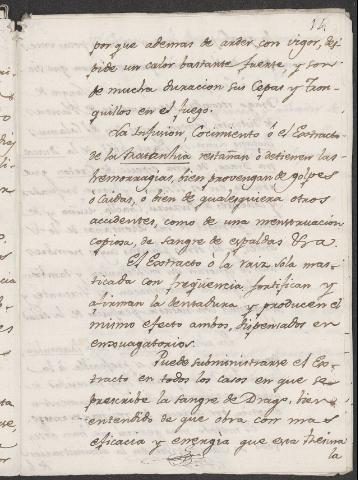 14
por que ademas de arder con vigor, des
pide un calor bastante fuerte y son
de mucha duracion sus Cepas y Tron
quillos en el fuego.
La Infusion, Cocimiento ó el Extracto
de la Ratanhia restañan ó detienen las
hemorragias, bien provengan de golpes
ó caidas, ó bien de qualesquiera otros
accidentes, como de una menstruacion
copiosa, de sangre de espaldas &ra
El Extracto ó la raiz sola mas-
ticada con freqüencia fortifican y
afirman la dentadura y producen el
mismo efecto ambos, dispensados en
enxuagatorios.
Puede subministrarse el Ex-
tracto en todos los casos en que se
prescribe la sangre de Drago, bien
entendido de que obra con mas
eficacia y energia que esta Resina
la